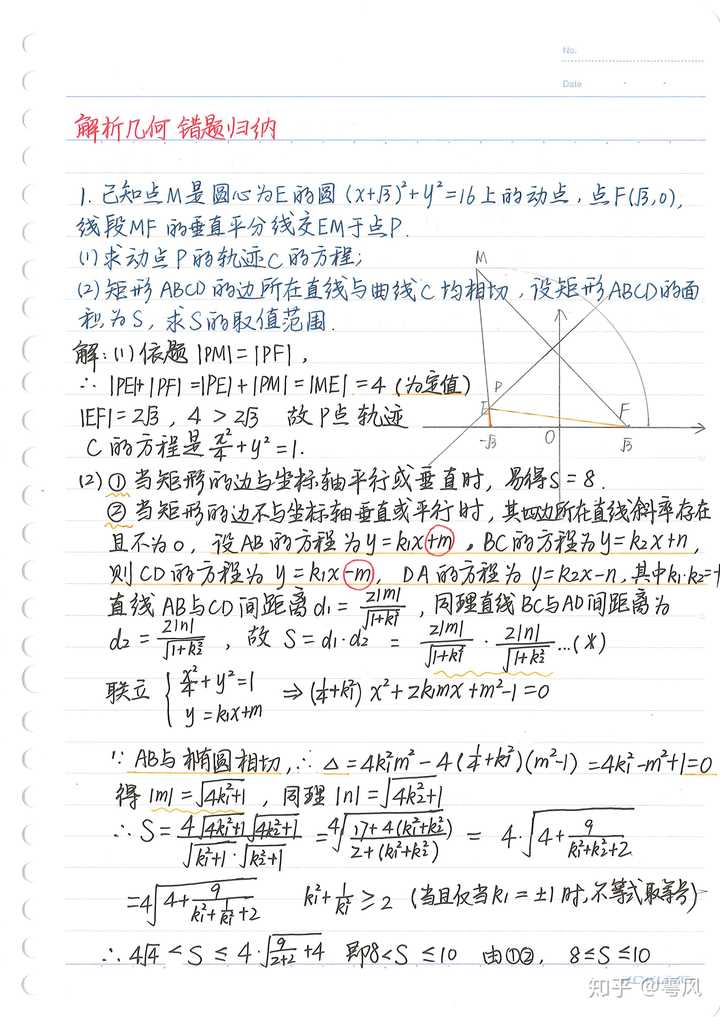 No.
Date
解析几何 错题归纳
1. 已知点M是圆心为E的圆 (x+√3)²+y²=16上的动点, 点F(√3,0),
线段MF的垂直平分线交EM于点P.
(1) 求动点P的轨迹C的方程;
(2) 矩形ABCD的边所在直线与曲线C均相切, 设矩形ABCD的面
积为S, 求S的取值范围.
M
P
E
F
-√3
O
√3
解:(1) 依题 |PM|=|PF|,
∴ |PE|+|PF|=|PE|+|PM|=|ME|=4 (为定值)
|EF|=2√3, 4>2√3 故P点轨迹
C的方程是 x²/4+y²=1.
(2) ① 当矩形的边与坐标轴平行或垂直时, 易得S=8.
② 当矩形的边不与坐标轴垂直或平行时, 其四边所在直线斜率存在
且不为0, 设AB的方程为y=k₁x+m, BC的方程为y=k₂x+n,
则CD的方程为 y=k₁x-m, DA的方程为 y=k₂x-n, 其中k₁·k₂=
直线AB与CD间距离d₁=2|m|/√(1+k₁²), 同理直线BC与AD间距离为
d₂=2|n|/√(1+k₂²), 故 S=d₁·d₂ = 2|m|/√(1+k₁²) · 2|n|/√(1+k₂²) …(*)
联立 { x²/4+y²=1
y=k₁x+m ⇒ (1/4+k₁²)x²+2k₁mx+m²-1=0
∵ AB与椭圆相切, ∴ Δ=4k₁²m²-4(1/4+k₁²)(m²-1)=4k₁²-m²+1=0
得 |m|=√(4k₁²+1), 同理 |n|=√(4k₂²+1)
∴ S=4√(4k₁²+1)√(4k₂²+1)/(√(k₁²+1)·√(k₂²+1)) =4√((17+4(k₁²+k₂²))/(2+(k₁²+k₂²))) = 4·√(4+9/(k₁²+k₂²+2))
=4√(4+9/(k₁²+1/k₁²+2)) k₁²+1/k₁²≥2 (当且仅当k₁=±1时, 不等式取等号)
∴ 4√4<S≤4·√(9/(2+2)+4) 即8<S≤10 由①②, 8≤S≤10
知乎 @雩风